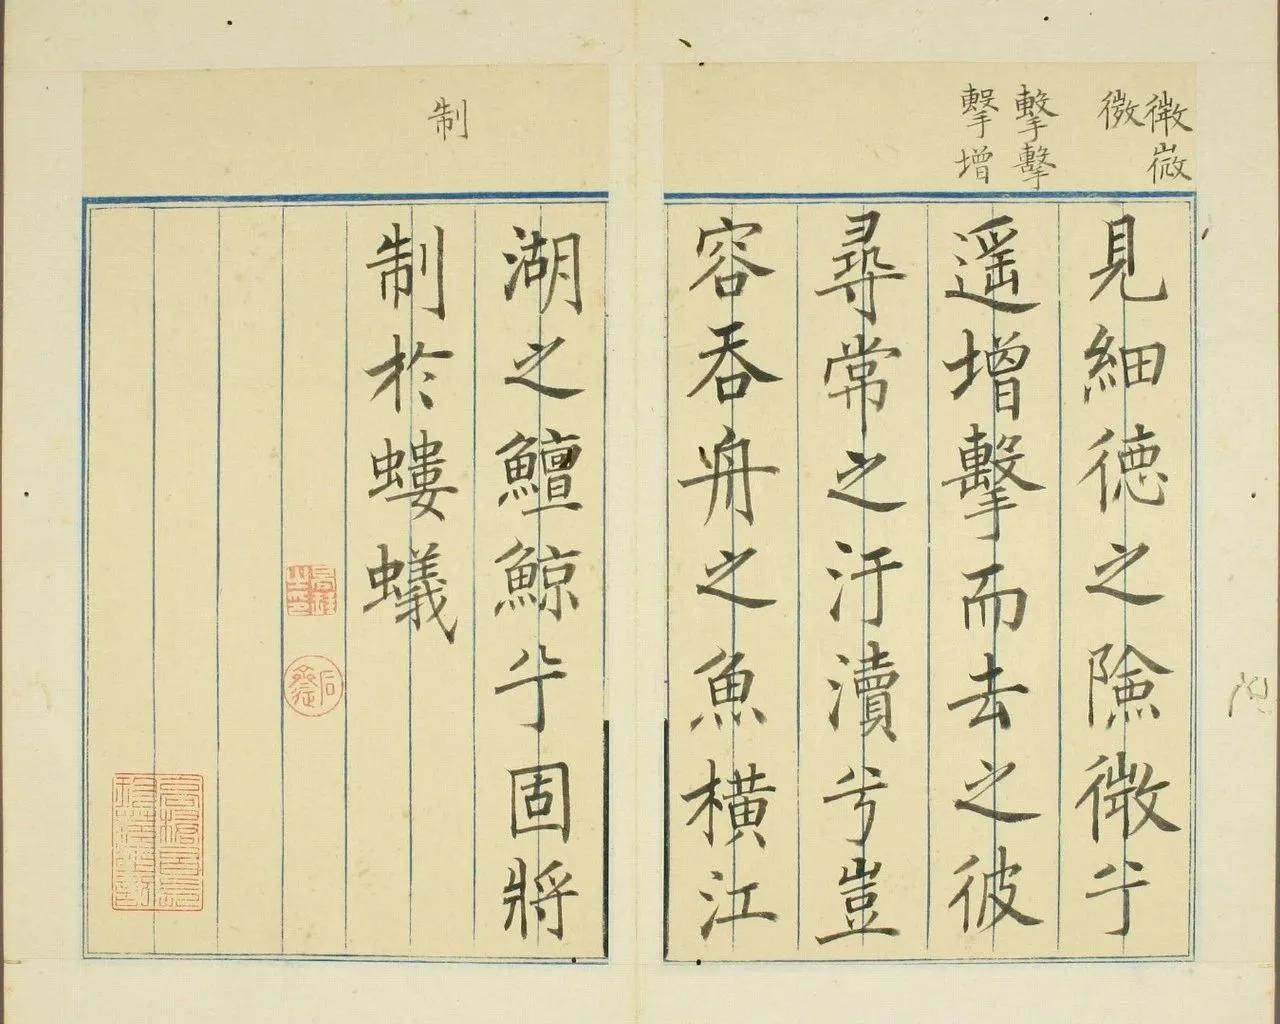 微微
微
擊擊
擊增
見細德之險微兮
遥增擊而去之彼
尋常之汙瀆兮豈
容吞舟之魚橫江
制
湖之鱣鯨兮固將
制於螻蟻